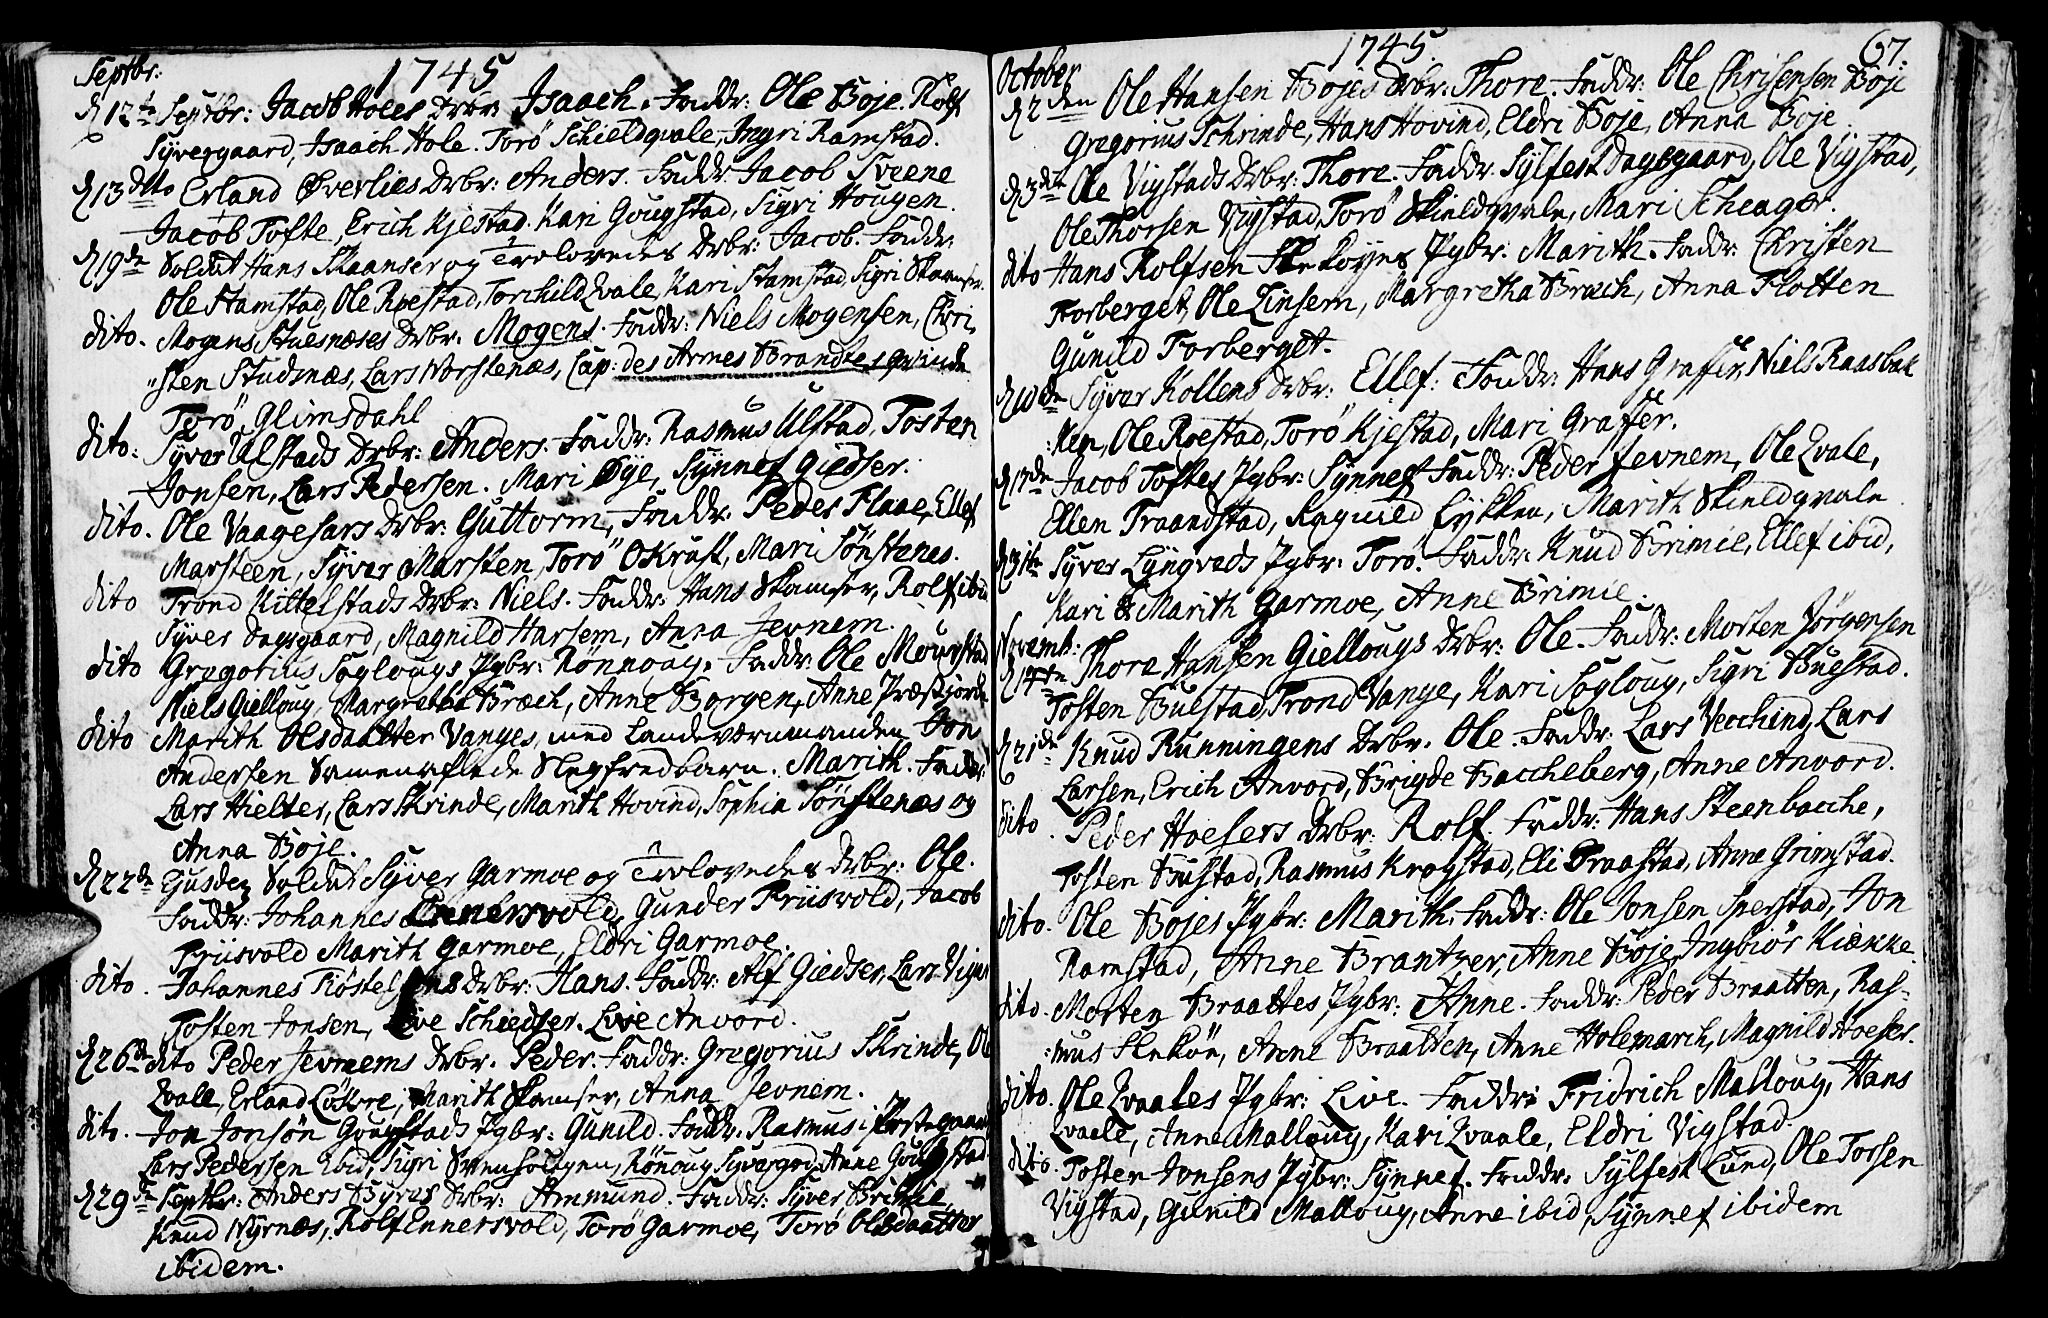 Septbr: 1745
d 12te Septbr: Jacob Holes Drbr: Isaach. Faddr: Ole Boje. Rolf
Syvergaard, Isaach Hole. Torö Schieldqvale, Ingri Ramstad.
d 13 dito Erland Øverlies Drbr: Anders. Faddr Jacob Sveene
Jacob Tofte, Erich Kjestad. Kari Gougstad, Sigri Hougen.
d 19de Soldat Hans Skaanser og Trolovedes Drbr: Jacob. Faddr:
Ole Stamstad, Ole Roestad, Torchild Qvale, Kari Stamstad, Sigri
dito. Mogens Stuesnæses Drbr: Mogens. Faddr: Niels Mogensen, Chri,
"sten Studsnæs, Lars Norstenæs, Cap: des Armes Brandtes qvinde
Torö Glimsdahl
dito: Syver Ulstads Drbr: Anders. Faddr: Rasmus Ulstad, Tosten
Jonsen, Lars Pedersen. Mari Øye, Synnef Giedser.
dito. Ole Vaagesars Drbr: Guttorm, Faddr: Peder Flaae, Ellef
Marsteen, Syver Marsten, Torö Okrust, Mari Sönstenes.
dito Trond Kittelstads Drbr: Niels. Faddr: Hans Skamser, Rolf ibid
Syver Dagsgaard, Magnild Harsem, Anna Jevnem.
dito Gregorius Soglougs Pgbr: Rönnoug. Faddr: Ole Mourstad
Niels Gielloug, Margretha Bræch, Anne Borgen, Anne Præstjorde
dito Marith Olsdaatter Vanges, med Landeværnmanden Jon
Andersen Samenaflede Slegfredbarn. Marith. Faddr:
Lars Hielter, Lars Skrinde, Marith Hovind, Sophia Sönstenæs og
Anna Boje.
d 22de Ejusdem Soldat Syver Garmoe og Trolovedes Drbr: Ole.
Faddr: Johannes Ennersvold, Gunder Friisvold, Jacob
Friisvold Marith Garmoe, Eldri Garmoe.
dito. Johannes Drbr: Hans. Faddr: Alf Giedser, Lars
Tosten Jonsen, Live Schiedser. Live Anvord.
d 26de dito Peder Jevnems Drbr. Peder. Faddr: Gregorius Skrinde, Ole
Qvale, Erland, Marith Skamser, Anna Jevnem.
dito. Jon Jonsön Gougstads Pgbr: Gunild. Faddr. Rasmus i
Lars Pedersen ibid, Sigri, Rönoug, Anne Gougstad
d 29de Septbr: Anders Byres Drbr: Ammund. Faddr: Syver Brimie,
Knud Nyrnæs, Rolf Ennersvold, Torö Garmoe, Torö Olsdaatter
ibidem.
October 1745 67.
d 2den Ole Hansen Bojes Drbr: Thore. Faddr: Ole Christensen Boje
Gregorius Schrinde, Hans Hovind, Eldri Boje, Anna Boje.
d 3die Ole Vigstads Drbr: Thore. Faddr. Sylfest Dagsgaard, Ole Vigstad,
Ole Thorsen Vigstad, Torö Skieldqvale, Mari Scheager.
dito Hans Rolfsen Pgbr. Marith. Faddr: Christen
Forberget, Ole Linsem, Margretha Bræch, Anna Flotten
Gunild Forberget.
d 10de Syver Kollens Drbr: Ellef: Faddr: Hans Graffer, Niels Raasbak
:ken, Ole Roestad, Torö Kjestad, Mari Graffer.
d 17de Jacob Toftes Pgbr: Synnef. Faddr: Peder Jevnem, Ole Qvale,
Ellen Traandstad, Ragnild Lykken, Marith Skieldqvale
d 31te Syver Lyngveds Pgbr: Torö. Faddr: Knud Brimie, Ellef ibid,
Kari & Marith Garmoe, Anne Brimie.
Novemb:
d 14de Thore Hansen Giellougs Drbr: Ole. Faddr: Morten Jörgensen
Tosten Buestad, Trond Vange, Kari Sogloug, Sigri Buestad.
d 21de Knud Runningens Drbr. Ole. Faddr: Lars Veochind, Lars
Larsen, Erich Anvord, Brigde Baccheberg, Anne Anvord.
dito. Peder Hoesers Drbr: Rolf. Faddr: Hans Steenbacche,
Tosten Bustad, Rasmus Krogstad, Eli Traastad, Anne Grimstad.
dito. Ole Bojes Pgbr: Marith. Faddr: Ole Jonsen Sperstad, Jon
Ramstad, Anne Brantzer, Anne Boje, Ingbiör Kiække
dito. Morten Braattes Pgbr: Anne. Faddr: Peder Braatten, Ras-
:mus, Anne Braatten, Anne Holemarch, Magnild Hoeser.
dito. Ole Qvaales Pgbr: Live. Faddr: Fridrich Malloug, Hans
Qvaale, Anne Malloug, Kari Qvaale, Eldri Vigstad.
dito. Tosten Jonsens Pgbr: Synnef. Faddr: Sylfest Lund, Ole Tossen
Vigstad, Gunild Malloug, Anne ibid, Synnef ibidem